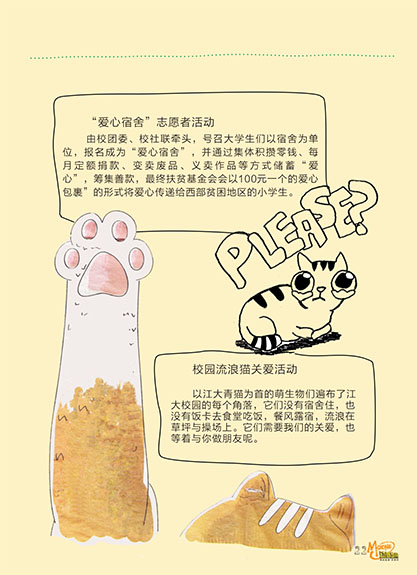 “爱心宿舍”志愿者活动
由校团委、校社联牵头，号召大学生们以宿舍为单
位，报名成为“爱心宿舍”，并通过集体积攒零钱、每
月定额捐款、变卖废品、义卖作品等方式储蓄“爱
心”，筹集善款，最终扶贫基金会会以100元一个的爱心
包裹”的形式将爱心传递给西部贫困地区的小学生。
PLEASE?
校园流浪猫关爱活动
以江大青猫为首的萌生物们遍布了江
大校园的每个角落，它们没有宿舍住，也
没有饭卡去食堂吃饭，餐风露宿，流浪在
草坪与操场上。它们需要我们的关爱，也
等着与你做朋友呢。
22